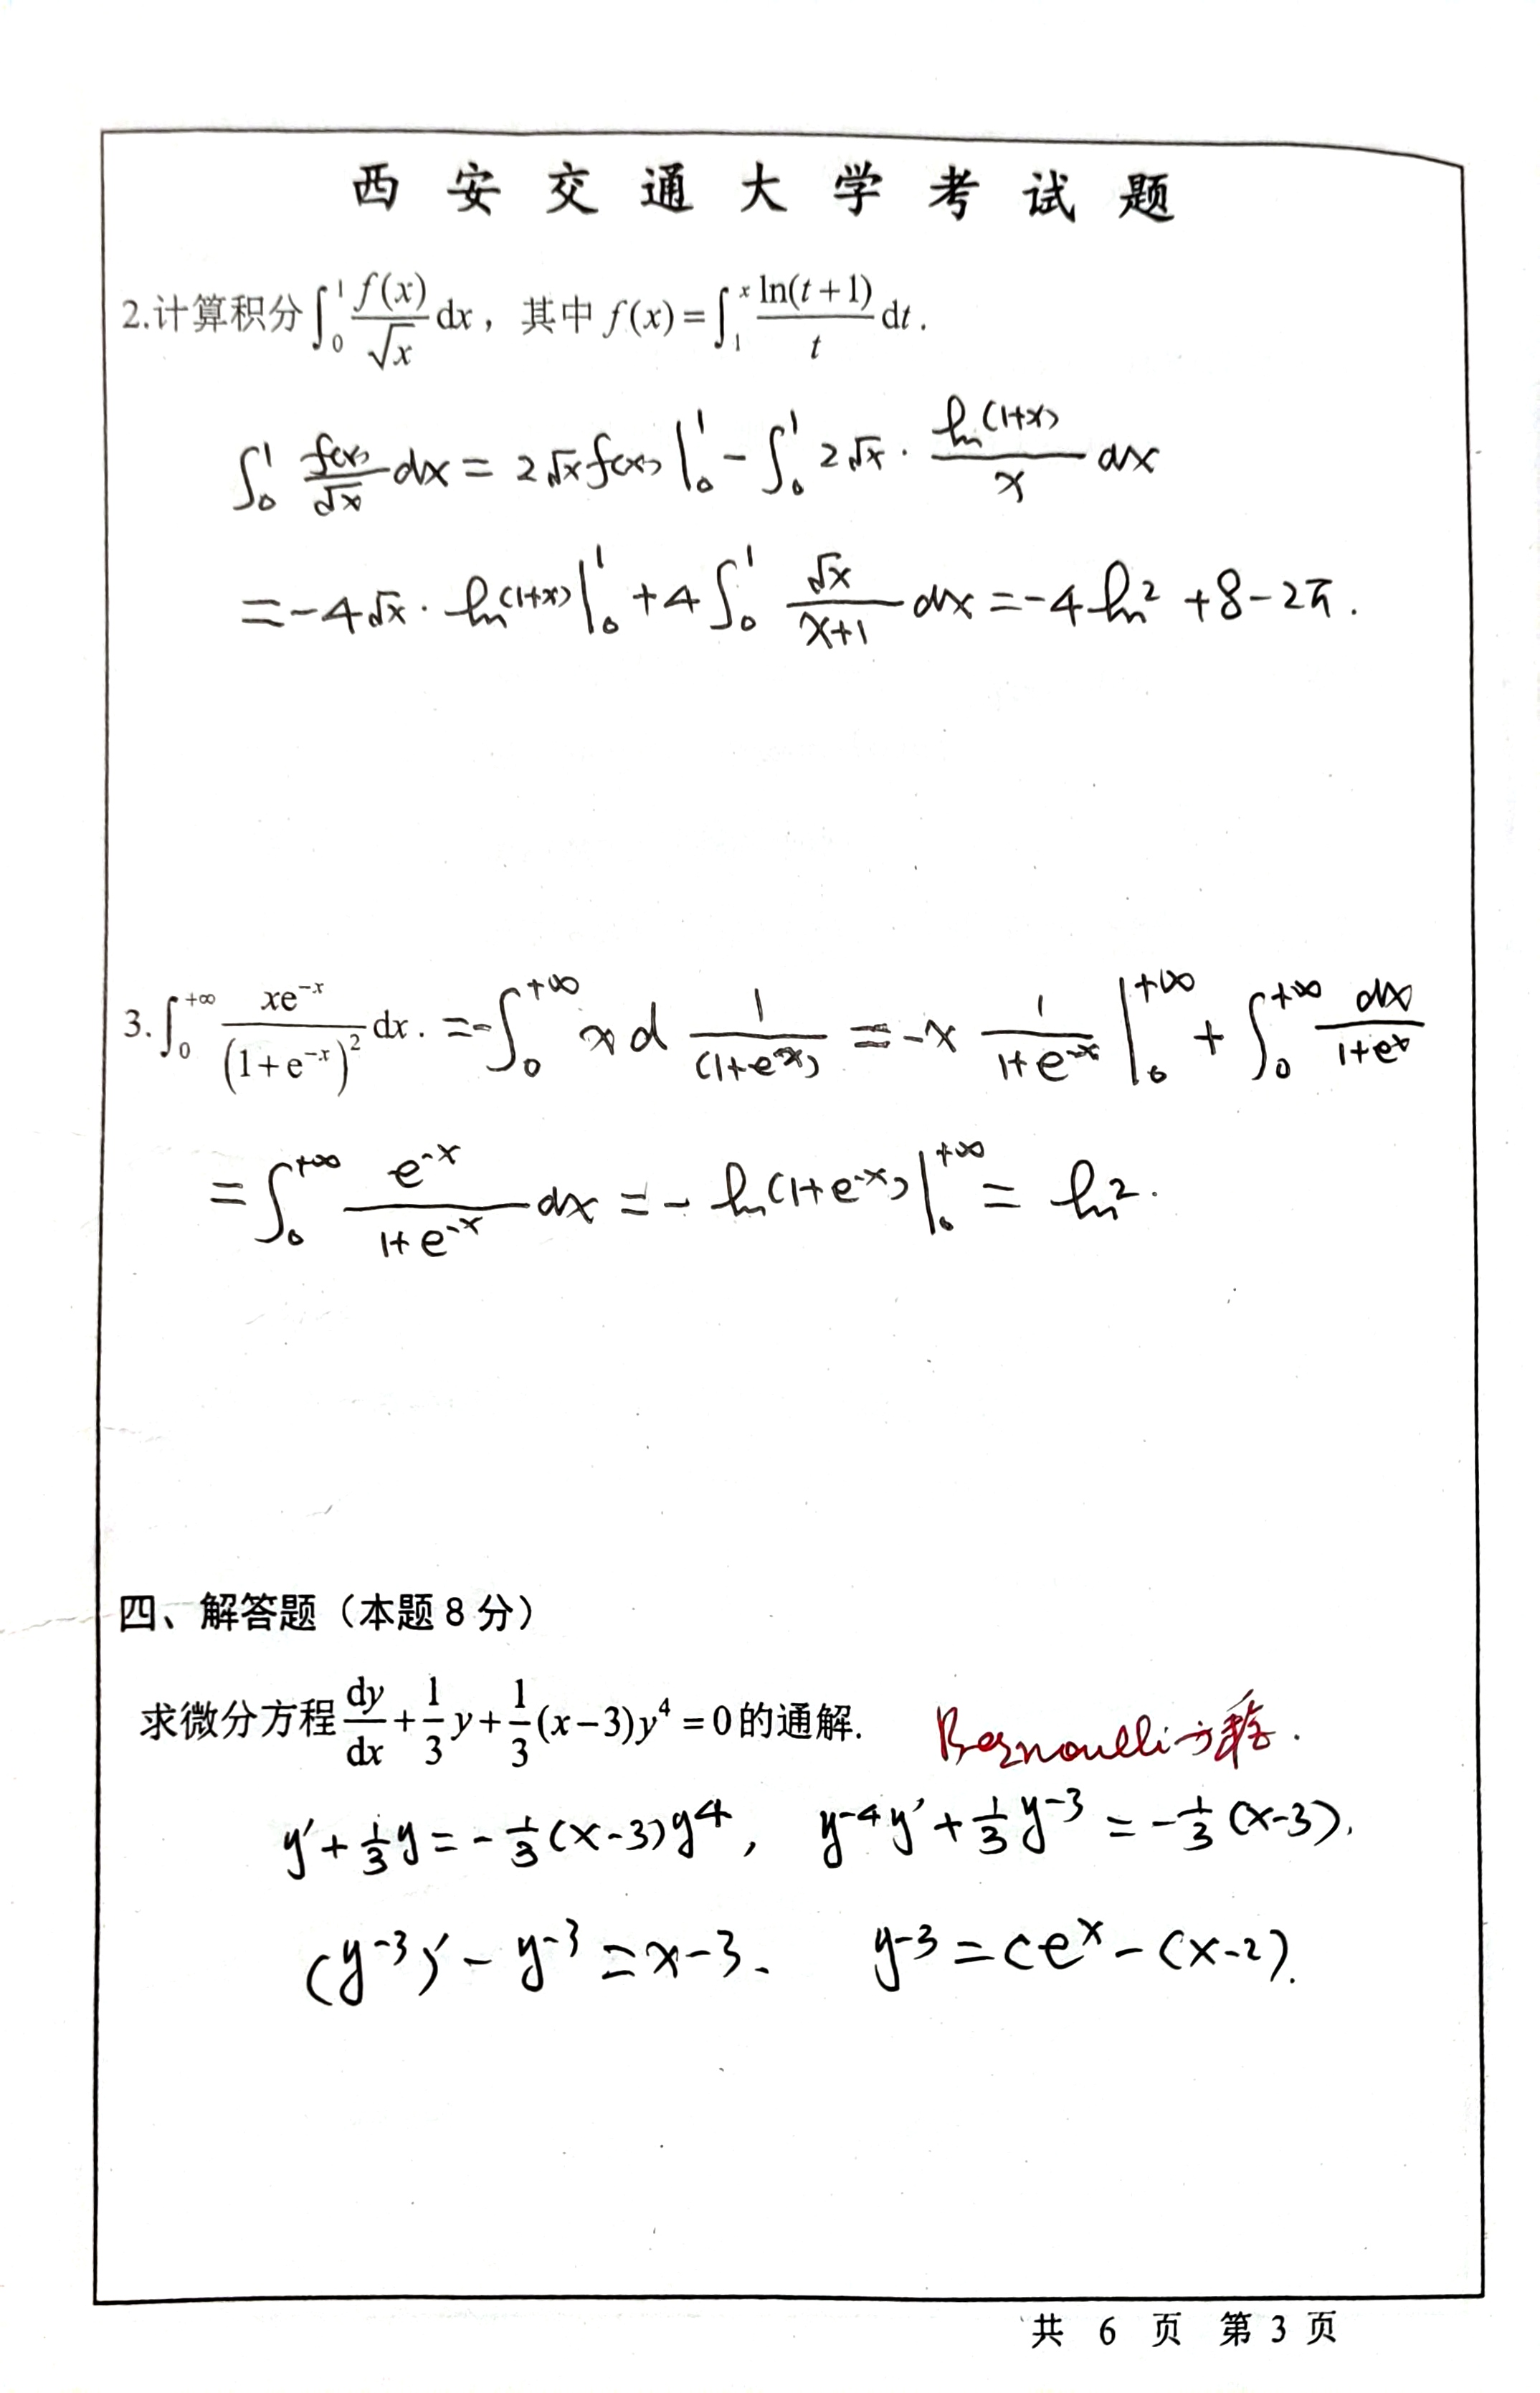 西安交通大学考试题
2.计算积分∫₀¹ f(x)/√x dx，其中 f(x)=∫₁ˣ ln(t+1)/t dt.
∫₀¹ f(x)/√x dx = 2√x f(x) |₀¹ - ∫₀¹ 2√x · ln(1+x)/x dx
= -4√x · ln(1+x) |₀¹ + 4∫₀¹ √x/(x+1) dx = -4 ln2 + 8 - 2π.
3. ∫₀^{+∞} xe^{-x}/(1+e^{-x})² dx. = -∫₀^{+∞} x d 1/(1+e^x) = -x 1/(1+e^{-x}) |₀^{+∞} + ∫₀^{+∞} dx/(1+e^x)
= ∫₀^{+∞} e^{-x}/(1+e^{-x}) dx = - ln(1+e^{-x}) |₀^{+∞} = ln2.
四、解答题（本题 8 分）
求微分方程 dy/dx + 1/3 y + 1/3 (x-3)y⁴ = 0 的通解.
Bernoulli方程.
y' + 1/3 y = - 1/3 (x-3)y⁴, y⁻⁴y' + 1/3 y⁻³ = - 1/3 (x-3).
(y⁻³)' - y⁻³ = x-3. y⁻³ = Ce^x - (x-2).
共 6 页 第 3 页